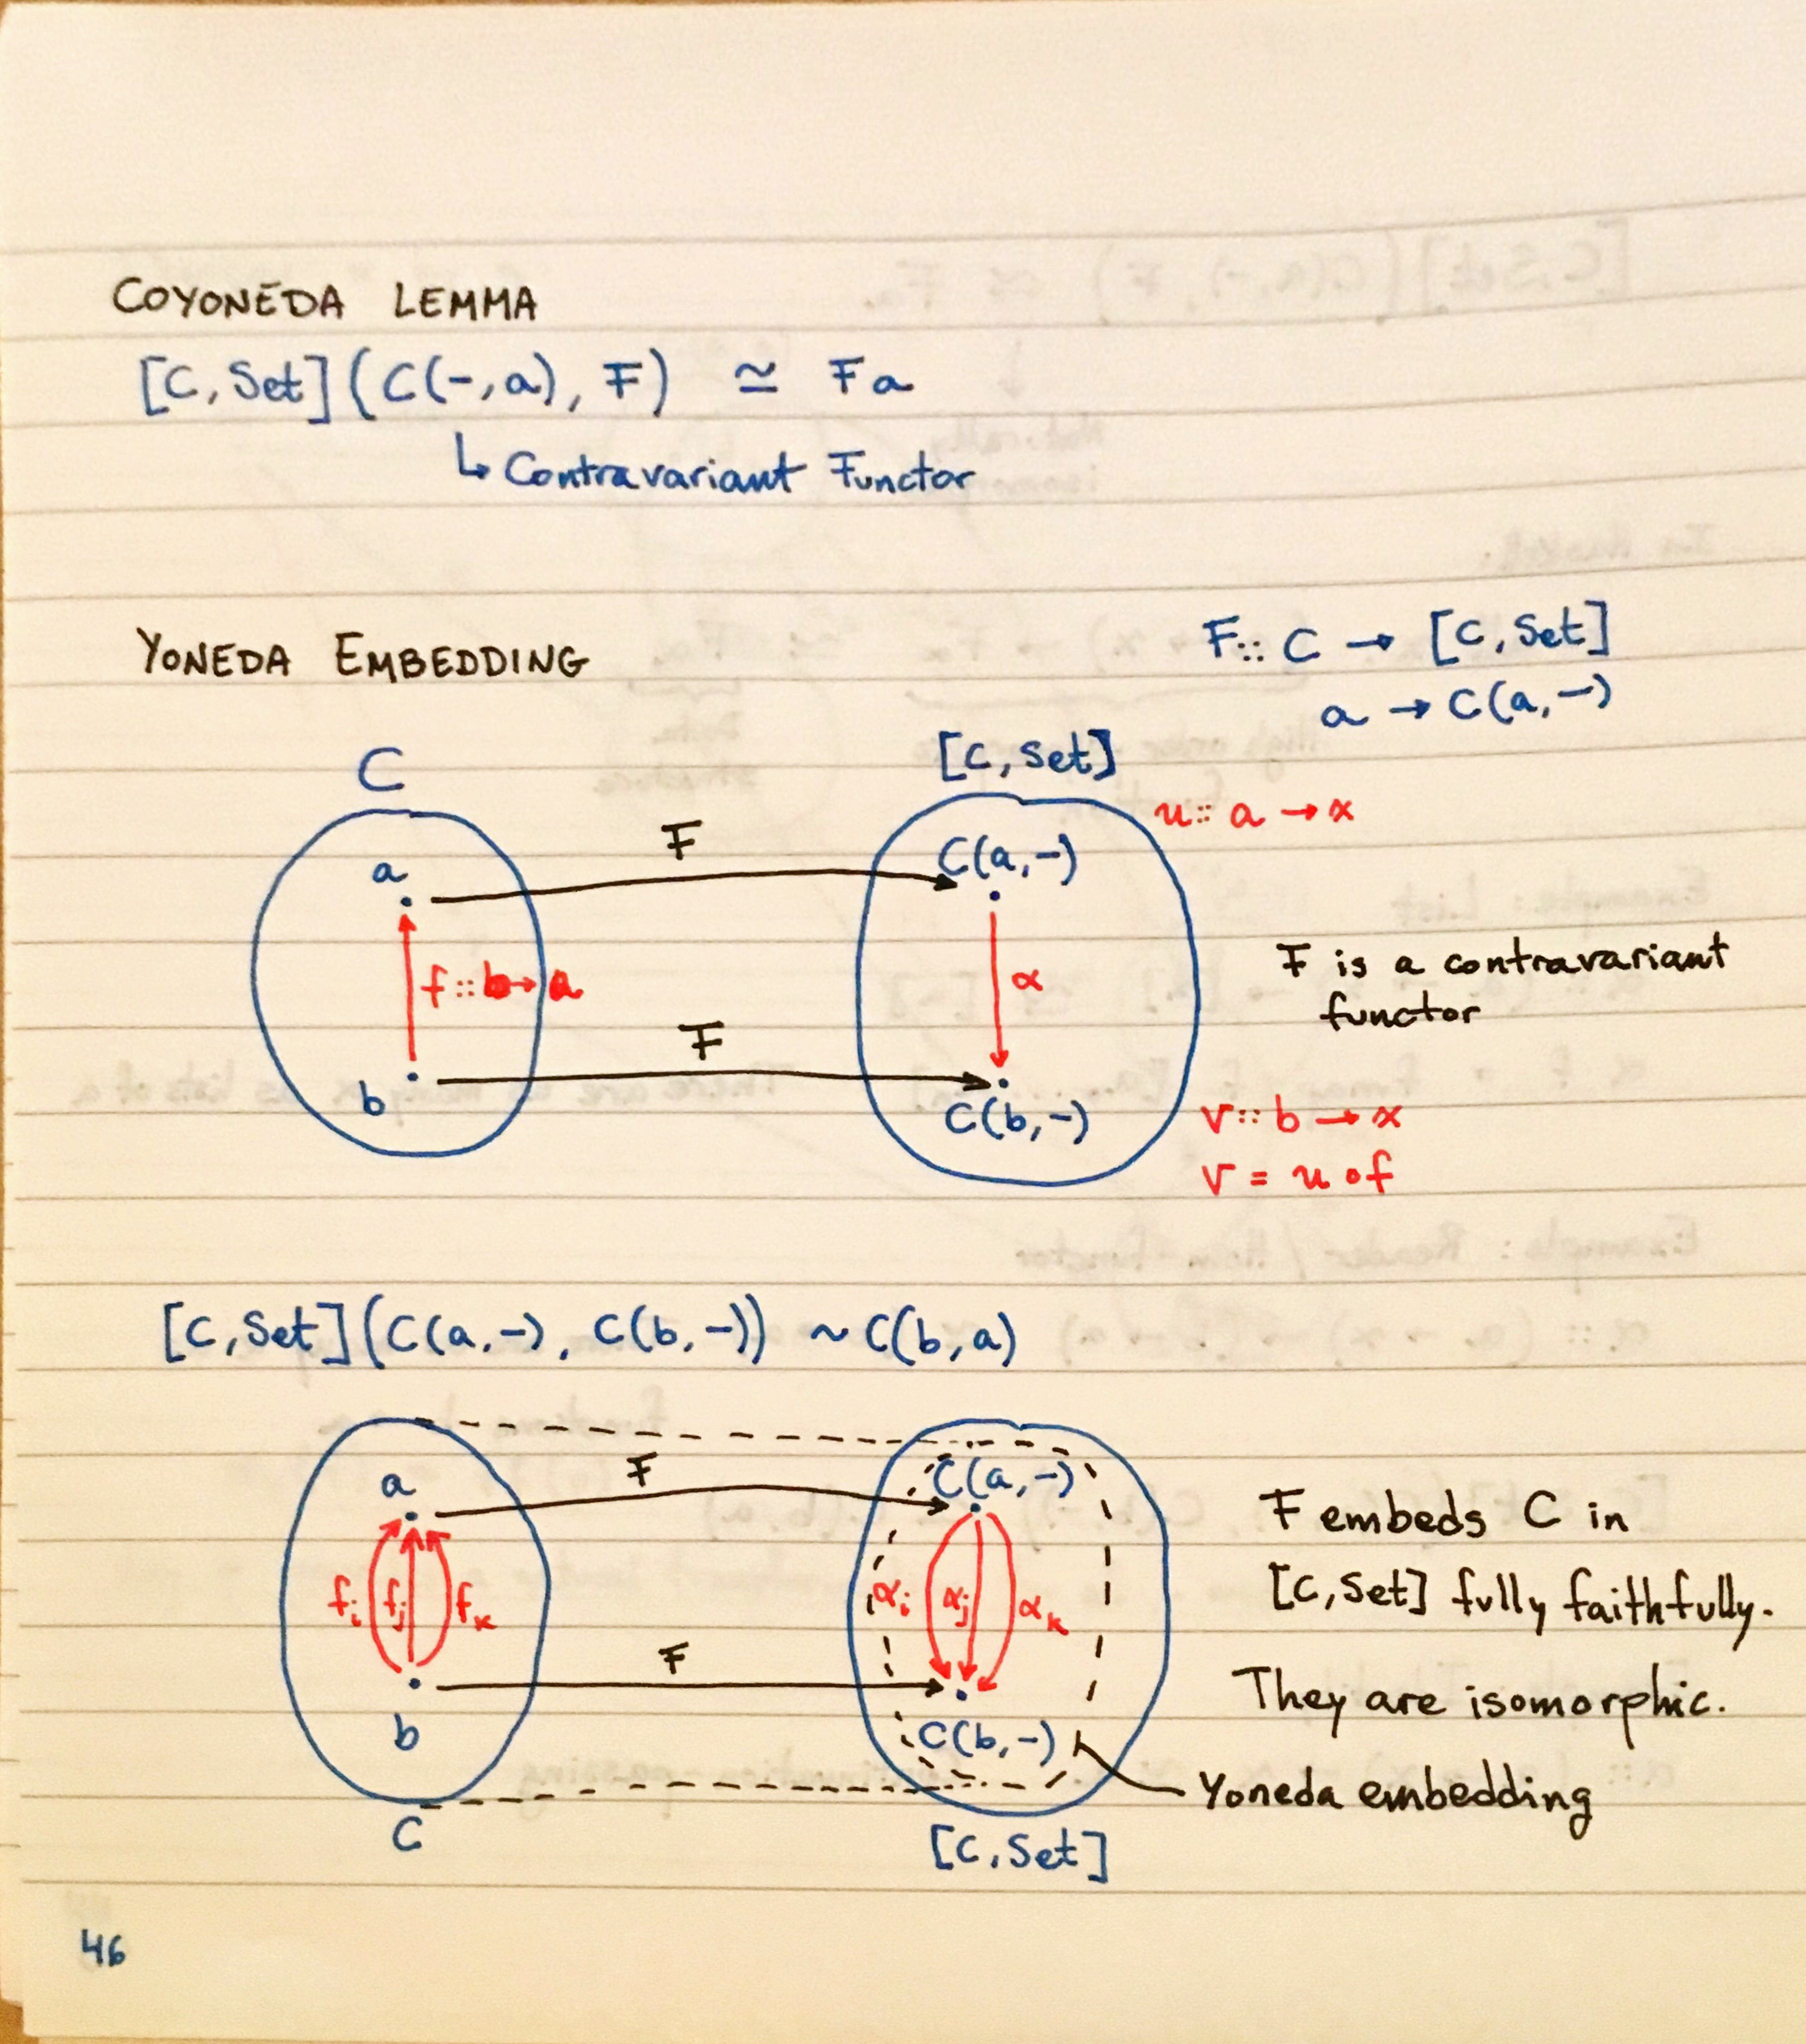 COYONEDA LEMMA
[C, Set](C(-, a), F) ≃ Fa
↳ Contravariant Functor
YONEDA EMBEDDING
F:: C → [C, Set]
a → C(a, -)
C
[C, Set]
u:: a → x
F
a
C(a, -)
f :: b → a
α
F is a contravariant
functor
F
b
C(b, -)
v:: b → x
v = u ∘ f
[C, Set](C(a, -), C(b, -)) ~ C(b, a)
F
a
C(a, -)
F embeds C in
[C, Set] fully faithfully.
fi fj fk
αi αj αk
F
They are isomorphic.
b
C(b, -)
Yoneda embedding
C
[C, Set]
46